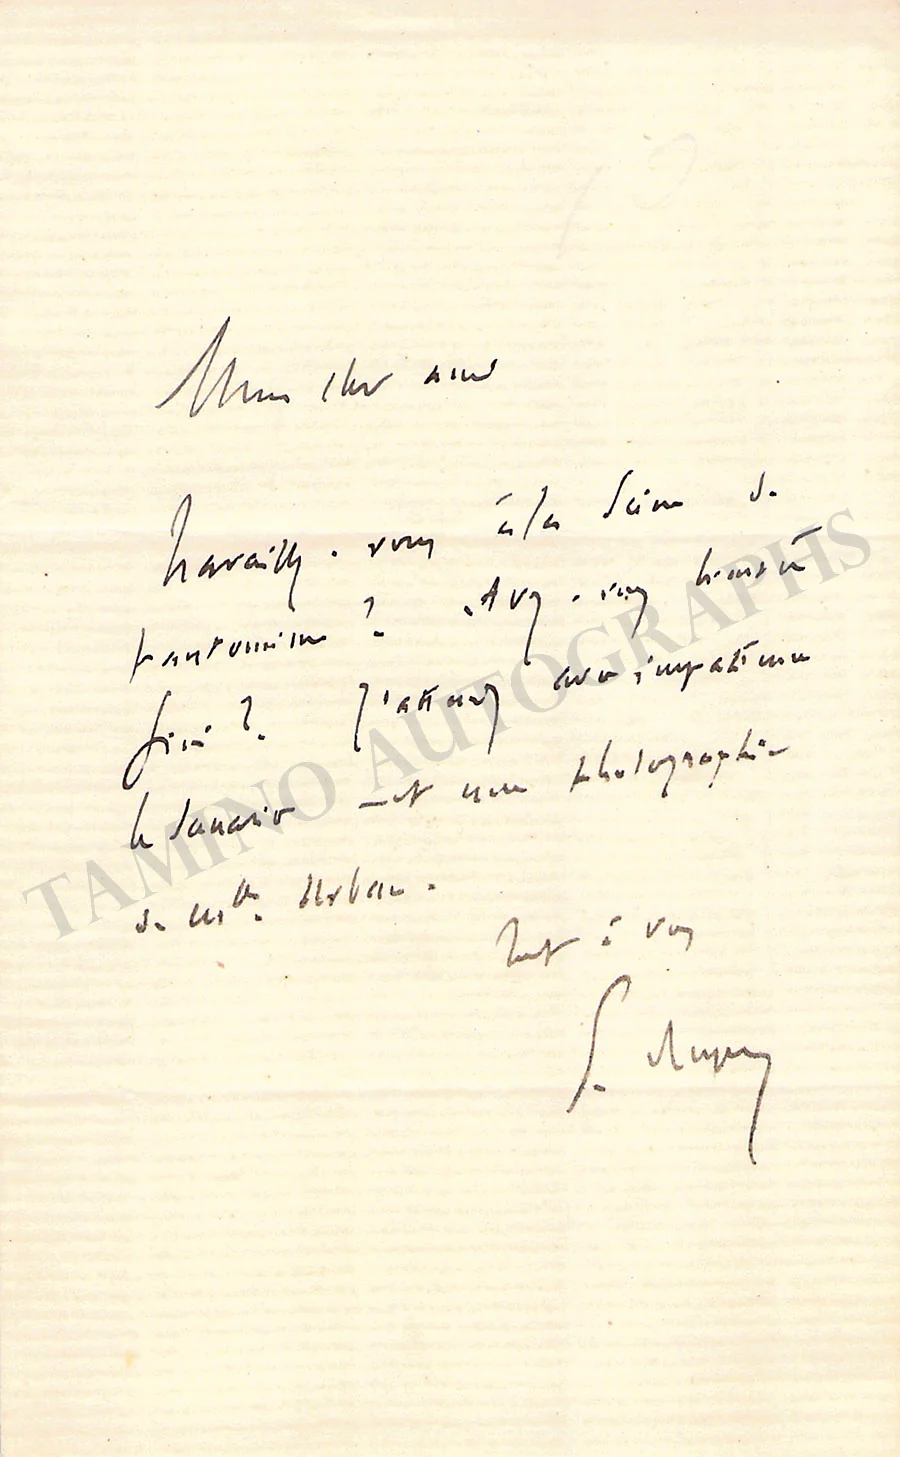 Mon cher ami
travaillez-vous à la scène de
pantomime ? Avez-vous bientôt
fini ? J'attends avec impatience
le scénario — et une photographie
de Mlle. Urban.
Tout à vous
TAMINO AUTOGRAPHS